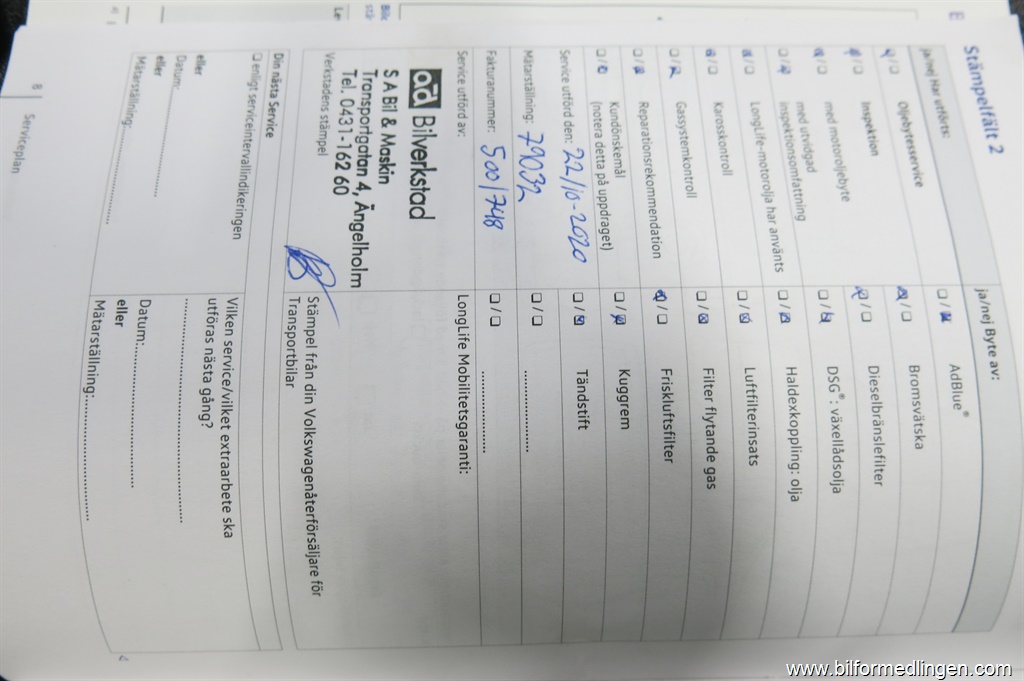 Stämpelfält 2
ja/nej Har utförts:
☒/☐ Oljebytesservice
☒/☐ Inspektion
med motoroljebyte
☒/☐ med utvidgad
inspektionsomfattning
☐/☒ LongLife-motorolja har använts
☒/☐ Karosskontroll
☒/☐ Gassystemkontroll
☐/☒ Reparationsrekommendation
☐/☒ Kundönskemål
(notera detta på uppdraget)
Service utförd den: 22/10-2020
Mätarställning: 79032
Fakturanummer: 500/748
Service utförd av:
ad Bilverkstad
S A Bil & Maskin
Transportgatan 4, Ängelholm
Tel. 0431-162 60
Verkstadens stämpel
ja/nej Byte av:
☐/☒ AdBlue®
☒/☐ Bromsvätska
☒/☐ Dieselbränslefilter
☐/☒ DSG®: växellådsolja
☐/☒ Haldexkoppling: olja
☐/☒ Luftfilterinsats
☐/☒ Filter flytande gas
☒/☐ Friskluftsfilter
☐/☒ Kuggrem
☐/☒ Tändstift
☐/☐ ................
☐/☐ ................
LongLife Mobilitetsgaranti:
Stämpel från din Volkswagenåterförsäljare för
Transportbilar
Din nästa Service
☐ enligt serviceintervallindikeringen
eller
Datum:................
eller
Mätarställning:................
Vilken service/vilket extraarbete ska
utföras nästa gång?
................
Datum:................
eller
Mätarställning:................
8 Serviceplan
www.bilformedlingen.com